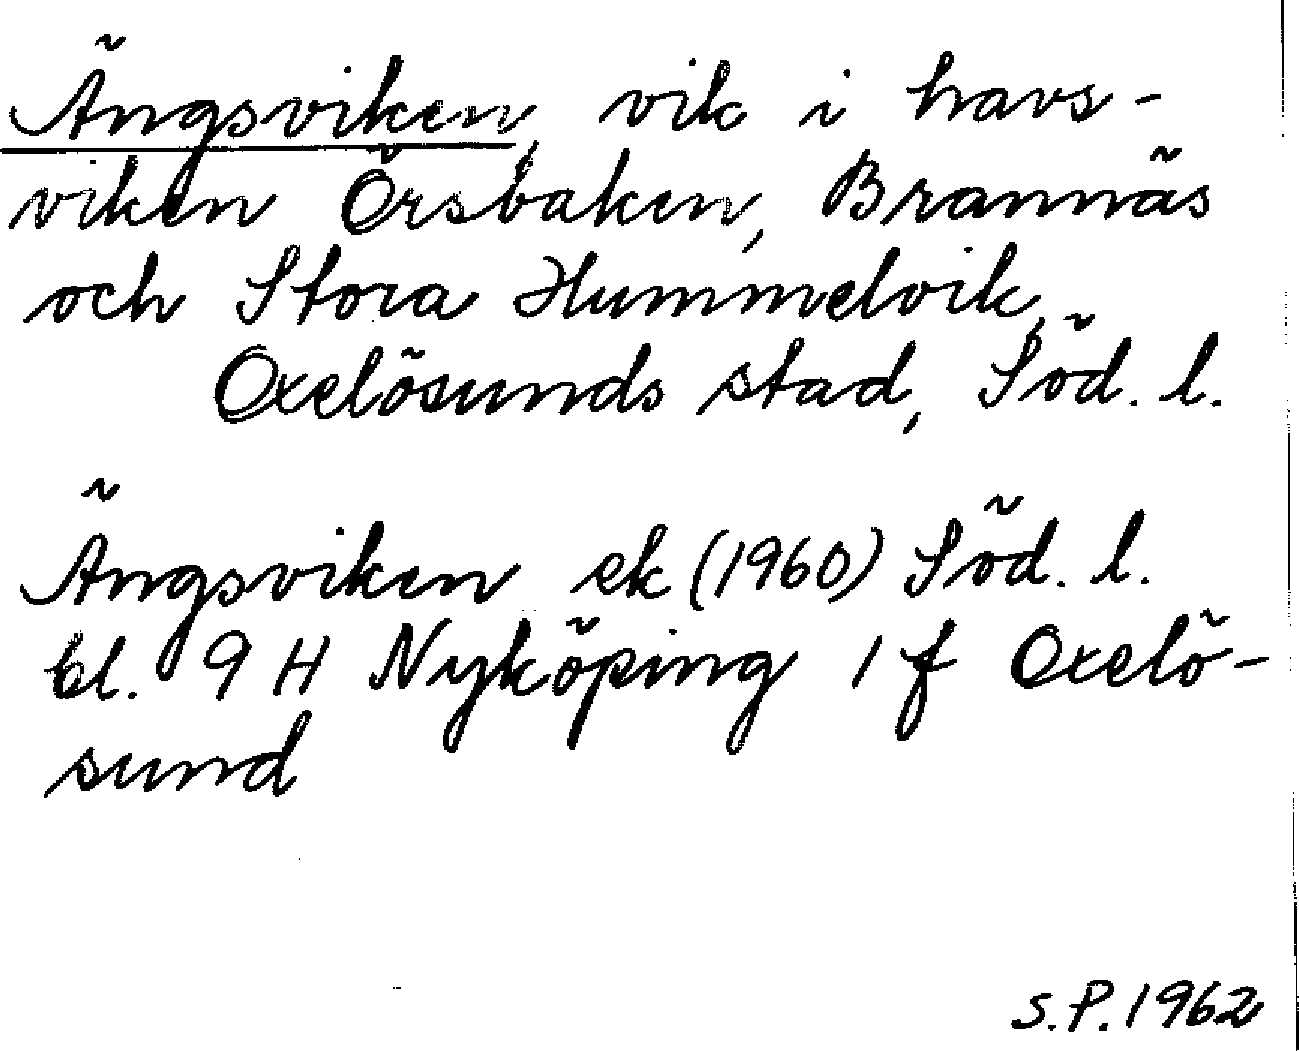 Ängsviken, vik i havs-
viken Örsbaken, Brannäs
och Stora Hummelvik,
Oxelösunds stad, Söd. l.
Ängsviken ek (1960) Söd. l.
bl. 9 H Nyköping 1 f Oxelö-
sund
S.P. 1962